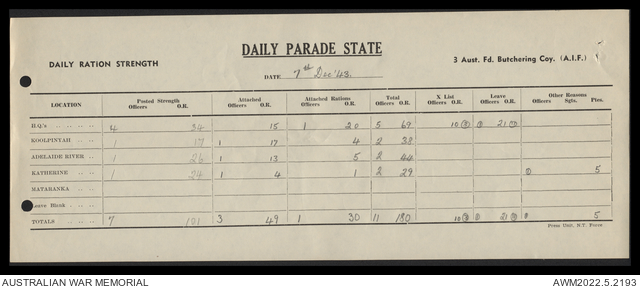 DAILY PARADE STATE
DAILY RATION STRENGTH
3 Aust. Fd. Butchering Coy. (A.I.F.)
DATE 7th Dec '43.
LOCATION Posted Strength Officers O.R. Attached Officers O.R. Attached Rations Officers O.R. Total Officers O.R. X List Officers O.R. Leave Officers O.R. Other Reasons Officers Sgts. Ptes.
H.Q's 4 34 15 1 20 5 69 10 21
KOOLPINYAH 1 17 1 17 4 2 38
ADELAIDE RIVER 1 26 1 13 5 2 44
KATHERINE 1 24 1 4 1 2 29 5
MATARANKA
Leave Blank
TOTALS 7 101 3 49 1 30 11 180 10 21 5
Press Unit, N.T. Force
AUSTRALIAN WAR MEMORIAL
AWM2022.5.2193